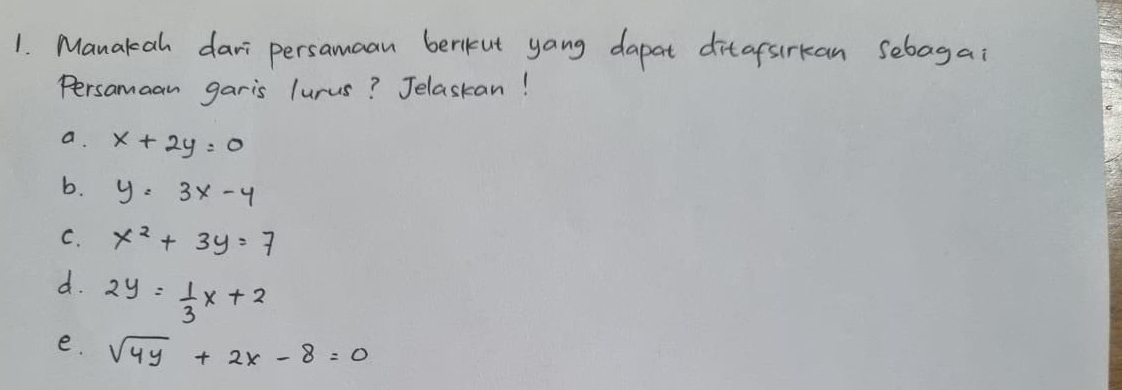 1. Manakah dari persamaan berikut yang dapat ditafsirkan sebagai
Persamaan garis lurus? Jelaskan!
a. x + 2y = 0
b. y = 3x - 4
c. x² + 3y = 7
d. 2y = 1/3 x + 2
e. √4y + 2x - 8 = 0